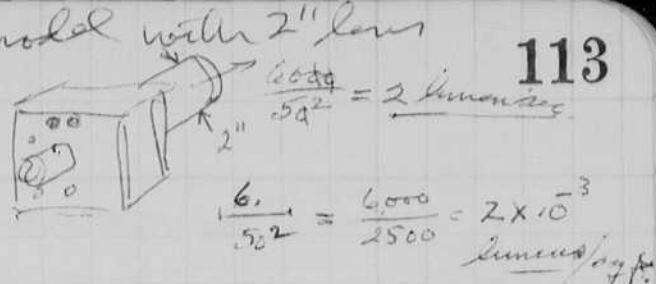 model with 2" lens
113
6000 / 50² = 2 lumen sec
2"
6. / 50² = 6,000 / 2500 = 2 x 10⁻³
lumens/sq ft.